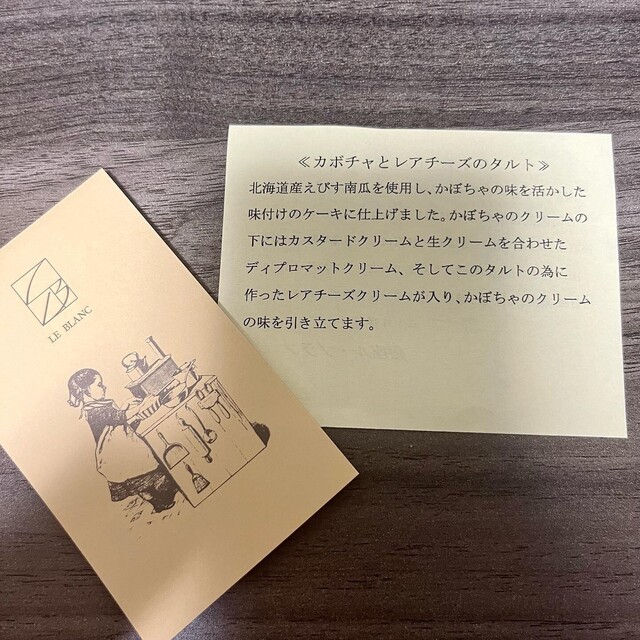 ≪カボチャとレアチーズのタルト≫
北海道産えびす南瓜を使用し、かぼちゃの味を活かした
味付けのケーキに仕上げました。かぼちゃのクリームの
下にはカスタードクリームと生クリームを合わせた
ディプロマットクリーム、そしてこのタルトの為に
作ったレアチーズクリームが入り、かぼちゃのクリーム
の味を引き立てます。
LB
LE BLANC